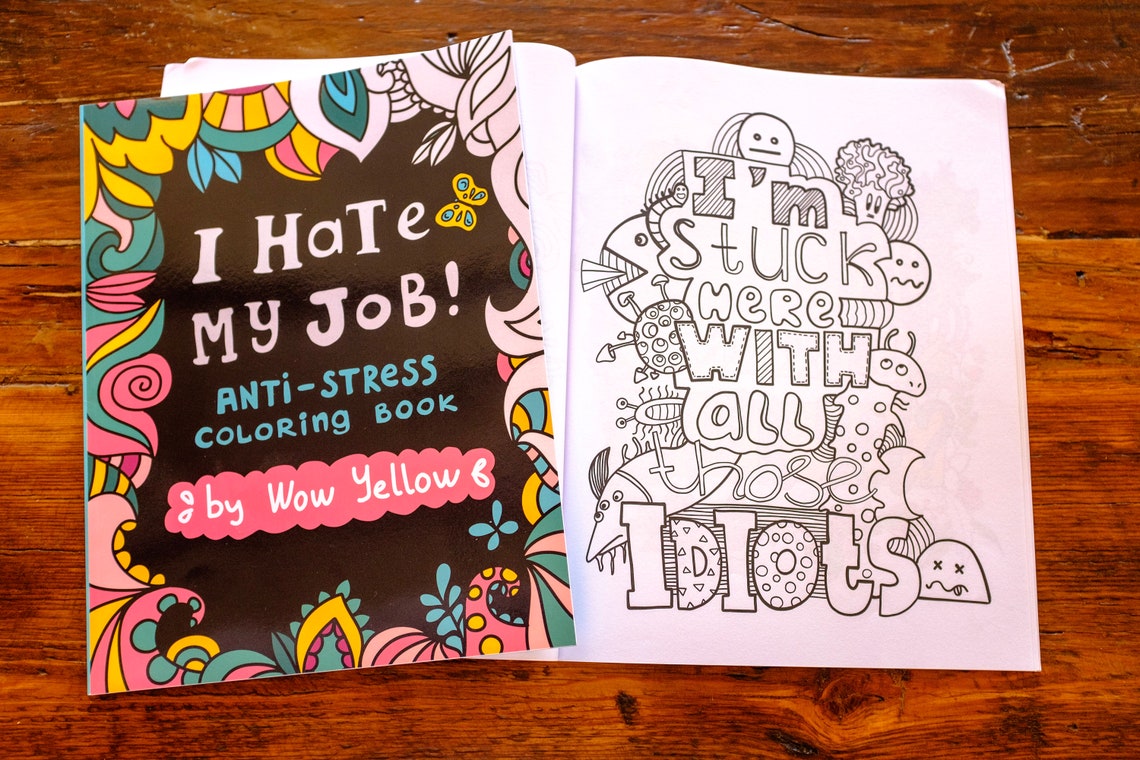 I HaTe
MY JOB!
ANTi-STRESS
COLORing BOOK
by Wow Yellow
I'm
Stuck
Here
WITH
all
those
IDIOts